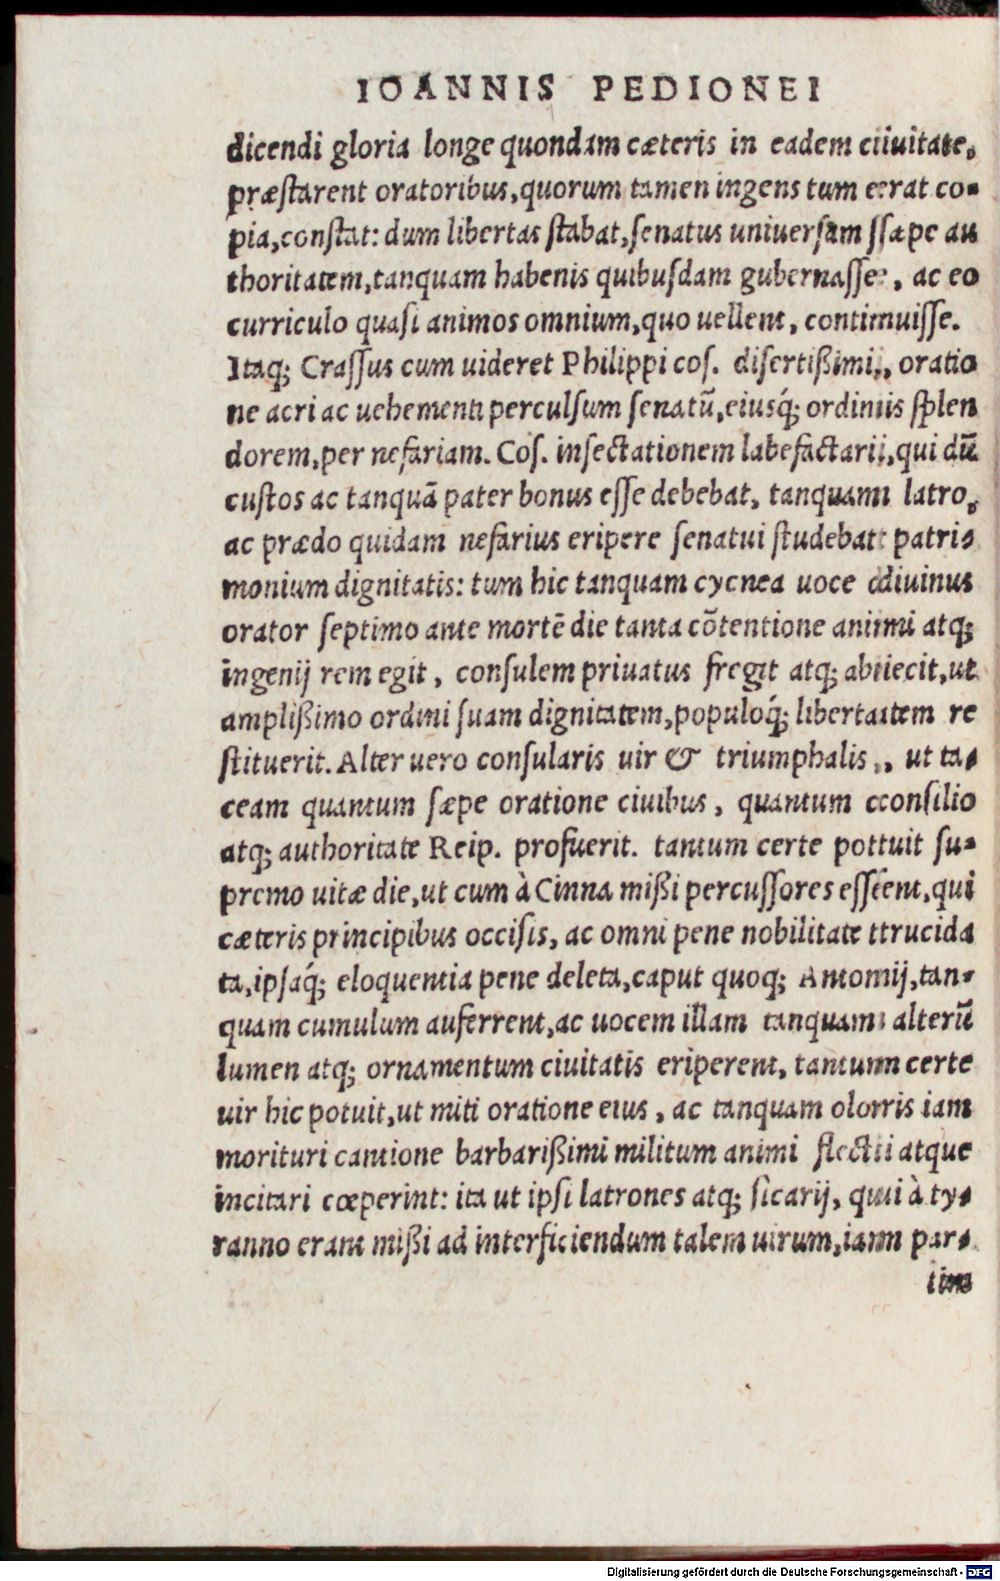 IOANNIS PEDIONEI
dicendi gloria longe quondam cæteris in eadem ciuitate,
præstarent oratoribus, quorum tamen ingens tum erat co-
pia, constat: dum libertas stabat, senatus uniuersam sæpe au
thoritatem, tanquam habenis quibusdam gubernasse, ac eo
curriculo quasi animos omnium, quo uellent, continuisse.
Itaq; Crassus cum uideret Philippi cos. disertißimi, oratio
ne acri ac uehementi perculsum senatū, eiusq́; ordinis splen
dorem, per nefariam. Cos. insectationem labefactari, qui dū
custos ac tanquā pater bonus esse debebat, tanquam latro,
ac prædo quidam nefarius eripere senatui studebat patri-
monium dignitatis: tum hic tanquam cycnea uoce diuinus
orator septimo ante mortē die tanta cōtentione animi atq;
ingenij rem egit, consulem priuatus fregit atq; abiecit, ut
amplißimo ordini suam dignitatem, populoq́; libertatem re
stituerit. Alter uero consularis uir & triumphalis, ut ta-
ceam quantum sæpe oratione ciuibus, quantum consilio
atq; authoritate Reip. profuerit. tantum certe potuit su-
premo uitæ die, ut cum à Cinna mißi percussores essent, qui
cæteris principibus occisis, ac omni pene nobilitate trucida
ta, ipsaq́; eloquentia pene deleta, caput quoq; Antonij, tan-
quam cumulum auferrent, ac uocem illam tanquam alterū
lumen atq; ornamentum ciuitatis eriperent, tantum certe
uir hic potuit, ut miti oratione eius, ac tanquam oloris iam
morituri cantione barbarißimi militum animi flecti atque
incitari cœperint: ita ut ipsi latrones atq; sicarij, qui à ty-
ranno erant mißi ad interficiendum talem uirum, iam par-
tim
Digitalisierung gefördert durch die Deutsche Forschungsgemeinschaft - DFG